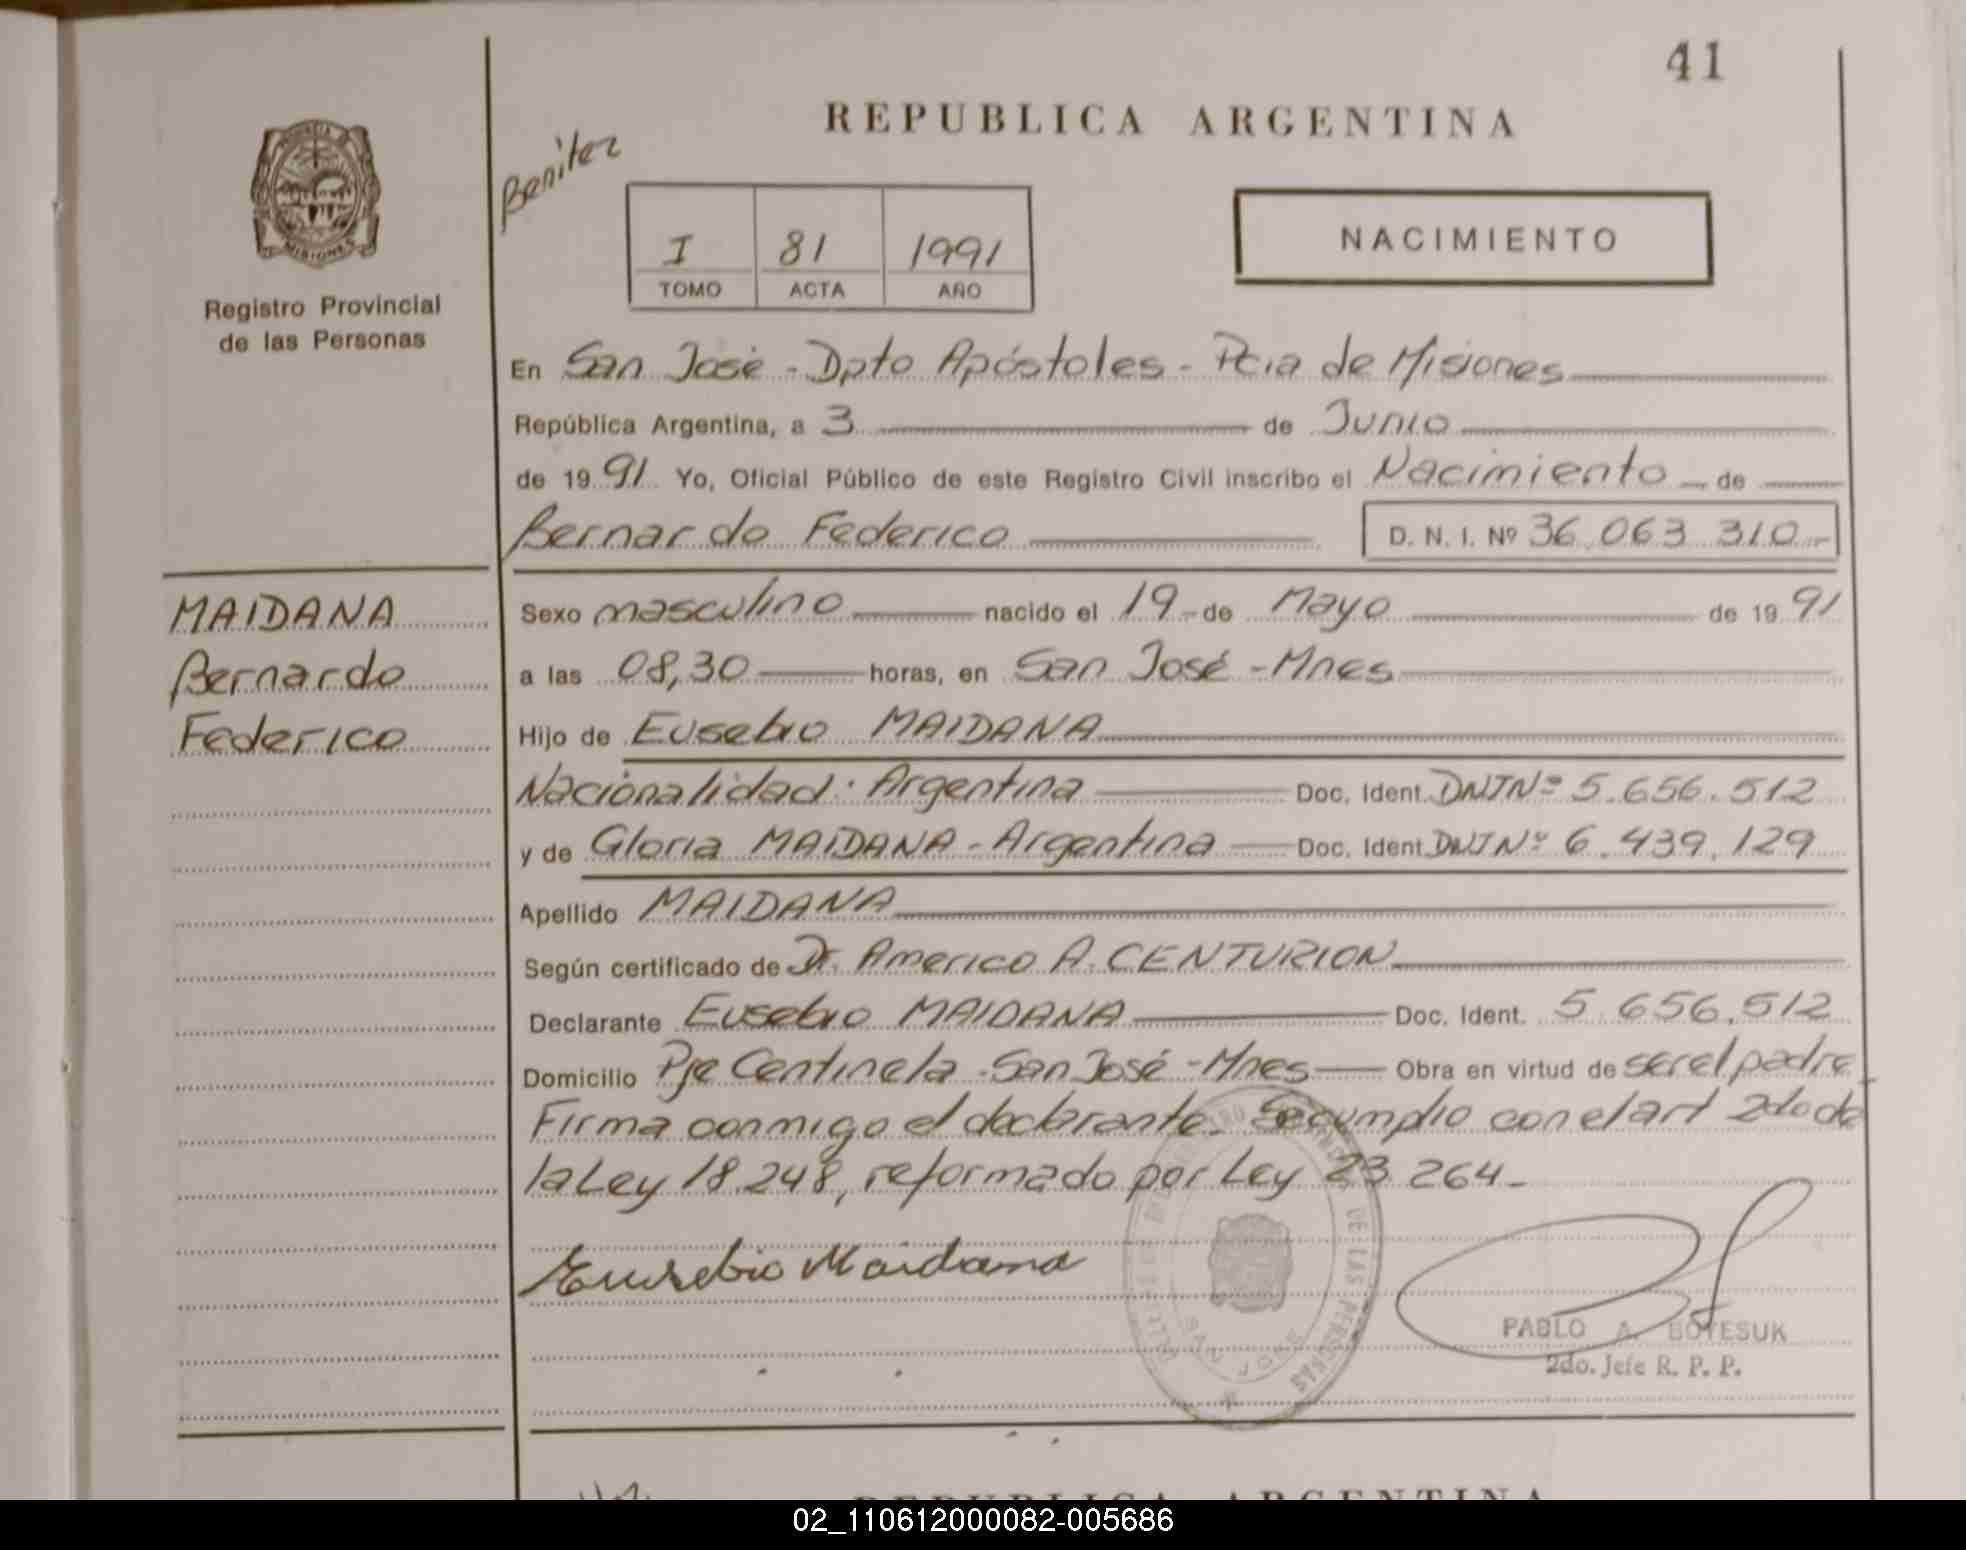 41
REPUBLICA ARGENTINA
Benitez
I 81 1991
TOMO ACTA AÑO
NACIMIENTO
MISIONES
Registro Provincial
de las Personas
En San José - Dpto Apóstoles - Pcia de Misiones
República Argentina, a 3 de Junio
de 1991 Yo, Oficial Público de este Registro Civil inscribo el Nacimiento de
Bernardo Federico D. N. I. Nº 36.063.310
MAIDANA
Bernardo
Federico
Sexo masculino nacido el 19 de Mayo de 1991
a las 08,30 horas, en San José - Mnes
Hijo de Eusebio MAIDANA
Nacionalidad: Argentina Doc. Ident. DNINº 5.656.512
y de Gloria MAIDANA - Argentina Doc. Ident. DNINº 6.439.129
Apellido MAIDANA
Según certificado de Dr. Americo A. CENTURION
Declarante Eusebio MAIDANA Doc. Ident. 5.656.512
Domicilio Pje Centinela - San José - Mnes Obra en virtud de ser el padre
Firma conmigo el declarante. Se cumplio con el art 2do de
la Ley 18.248, reformado por Ley 23.264 -
Eusebio Maidana
DE LAS PERSONAS
SAN JOSE
PABLO A. BOYESUK
2do. Jefe R. P. P.
REPUBLICA ARGENTINA
02_110612000082-005686